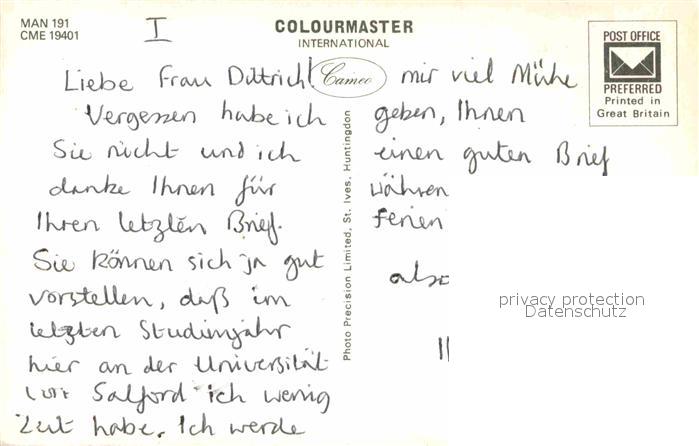 MAN 191
CME 19401
I
COLOURMASTER
INTERNATIONAL
Cameo
POST OFFICE
PREFERRED
Printed in
Great Britain
Liebe Frau Dittrich!
Vergessen habe ich
Sie nicht und ich
danke Ihnen für
Ihren letzten Brief.
Sie können sich ja gut
vorstellen, daß im
letzten Studienjahr
hier an der Universität
von Salford ich wenig
Zeit habe. Ich werde
Photo Precision Limited, St. Ives, Huntingdon
mir viel Mühe
geben, Ihnen
einen guten Brief
währen
Ferien
also
privacy protection
Datenschutz